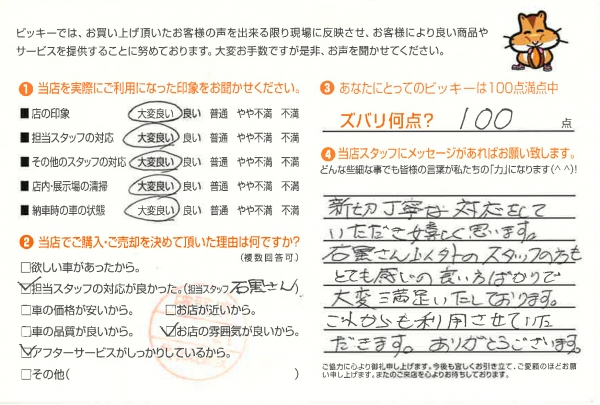 ビッキーでは、お買い上げ頂いたお客様の声を出来る限り現場に反映させ、お客様により良い商品や
サービスを提供することに努めております。大変お手数ですが是非、お声を聞かせてください。
❶ 当店を実際にご利用になった印象をお聞かせください。
■ 店の印象 大変良い 良い 普通 やや不満 不満
■ 担当スタッフの対応 大変良い 良い 普通 やや不満 不満
■ その他のスタッフの対応 大変良い 良い 普通 やや不満 不満
■ 店内・展示場の清掃 大変良い 良い 普通 やや不満 不満
■ 納車時の車の状態 大変良い 良い 普通 やや不満 不満
❷ 当店でご購入・ご売却を決めて頂いた理由は何ですか?
(複数回答可)
□欲しい車があったから。
☑担当スタッフの対応が良かった。(担当スタッフ 石黒さん)
□車の価格が安いから。 □お店が近いから。
□車の品質が良いから。 ☑お店の雰囲気が良いから。
☑アフターサービスがしっかりしているから。
□その他( )
❸ あなたにとってのビッキーは100点満点中
ズバリ何点? 100 点
❹ 当店スタッフにメッセージがあればお願い致します。
どんな些細な事でも皆様の言葉が私たちの「力」になります(^^)!
親切丁寧な対応をして
いただき嬉しく思います。
石黒さん以外のスタッフの方も
とても感じの良い方ばかりで
大変満足いたしております。
これからも利用させていた
だきます。ありがとうございます。
ご協力に心より御礼申し上げます。今後も宜しくお引き立て、ご愛顧のほどお願い申し上げます。またのご来店を心よりお待ちしております。